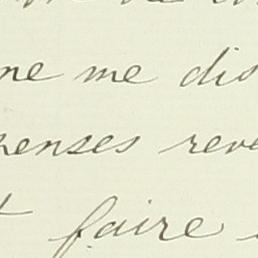 ne me dis
penses reve
t faire